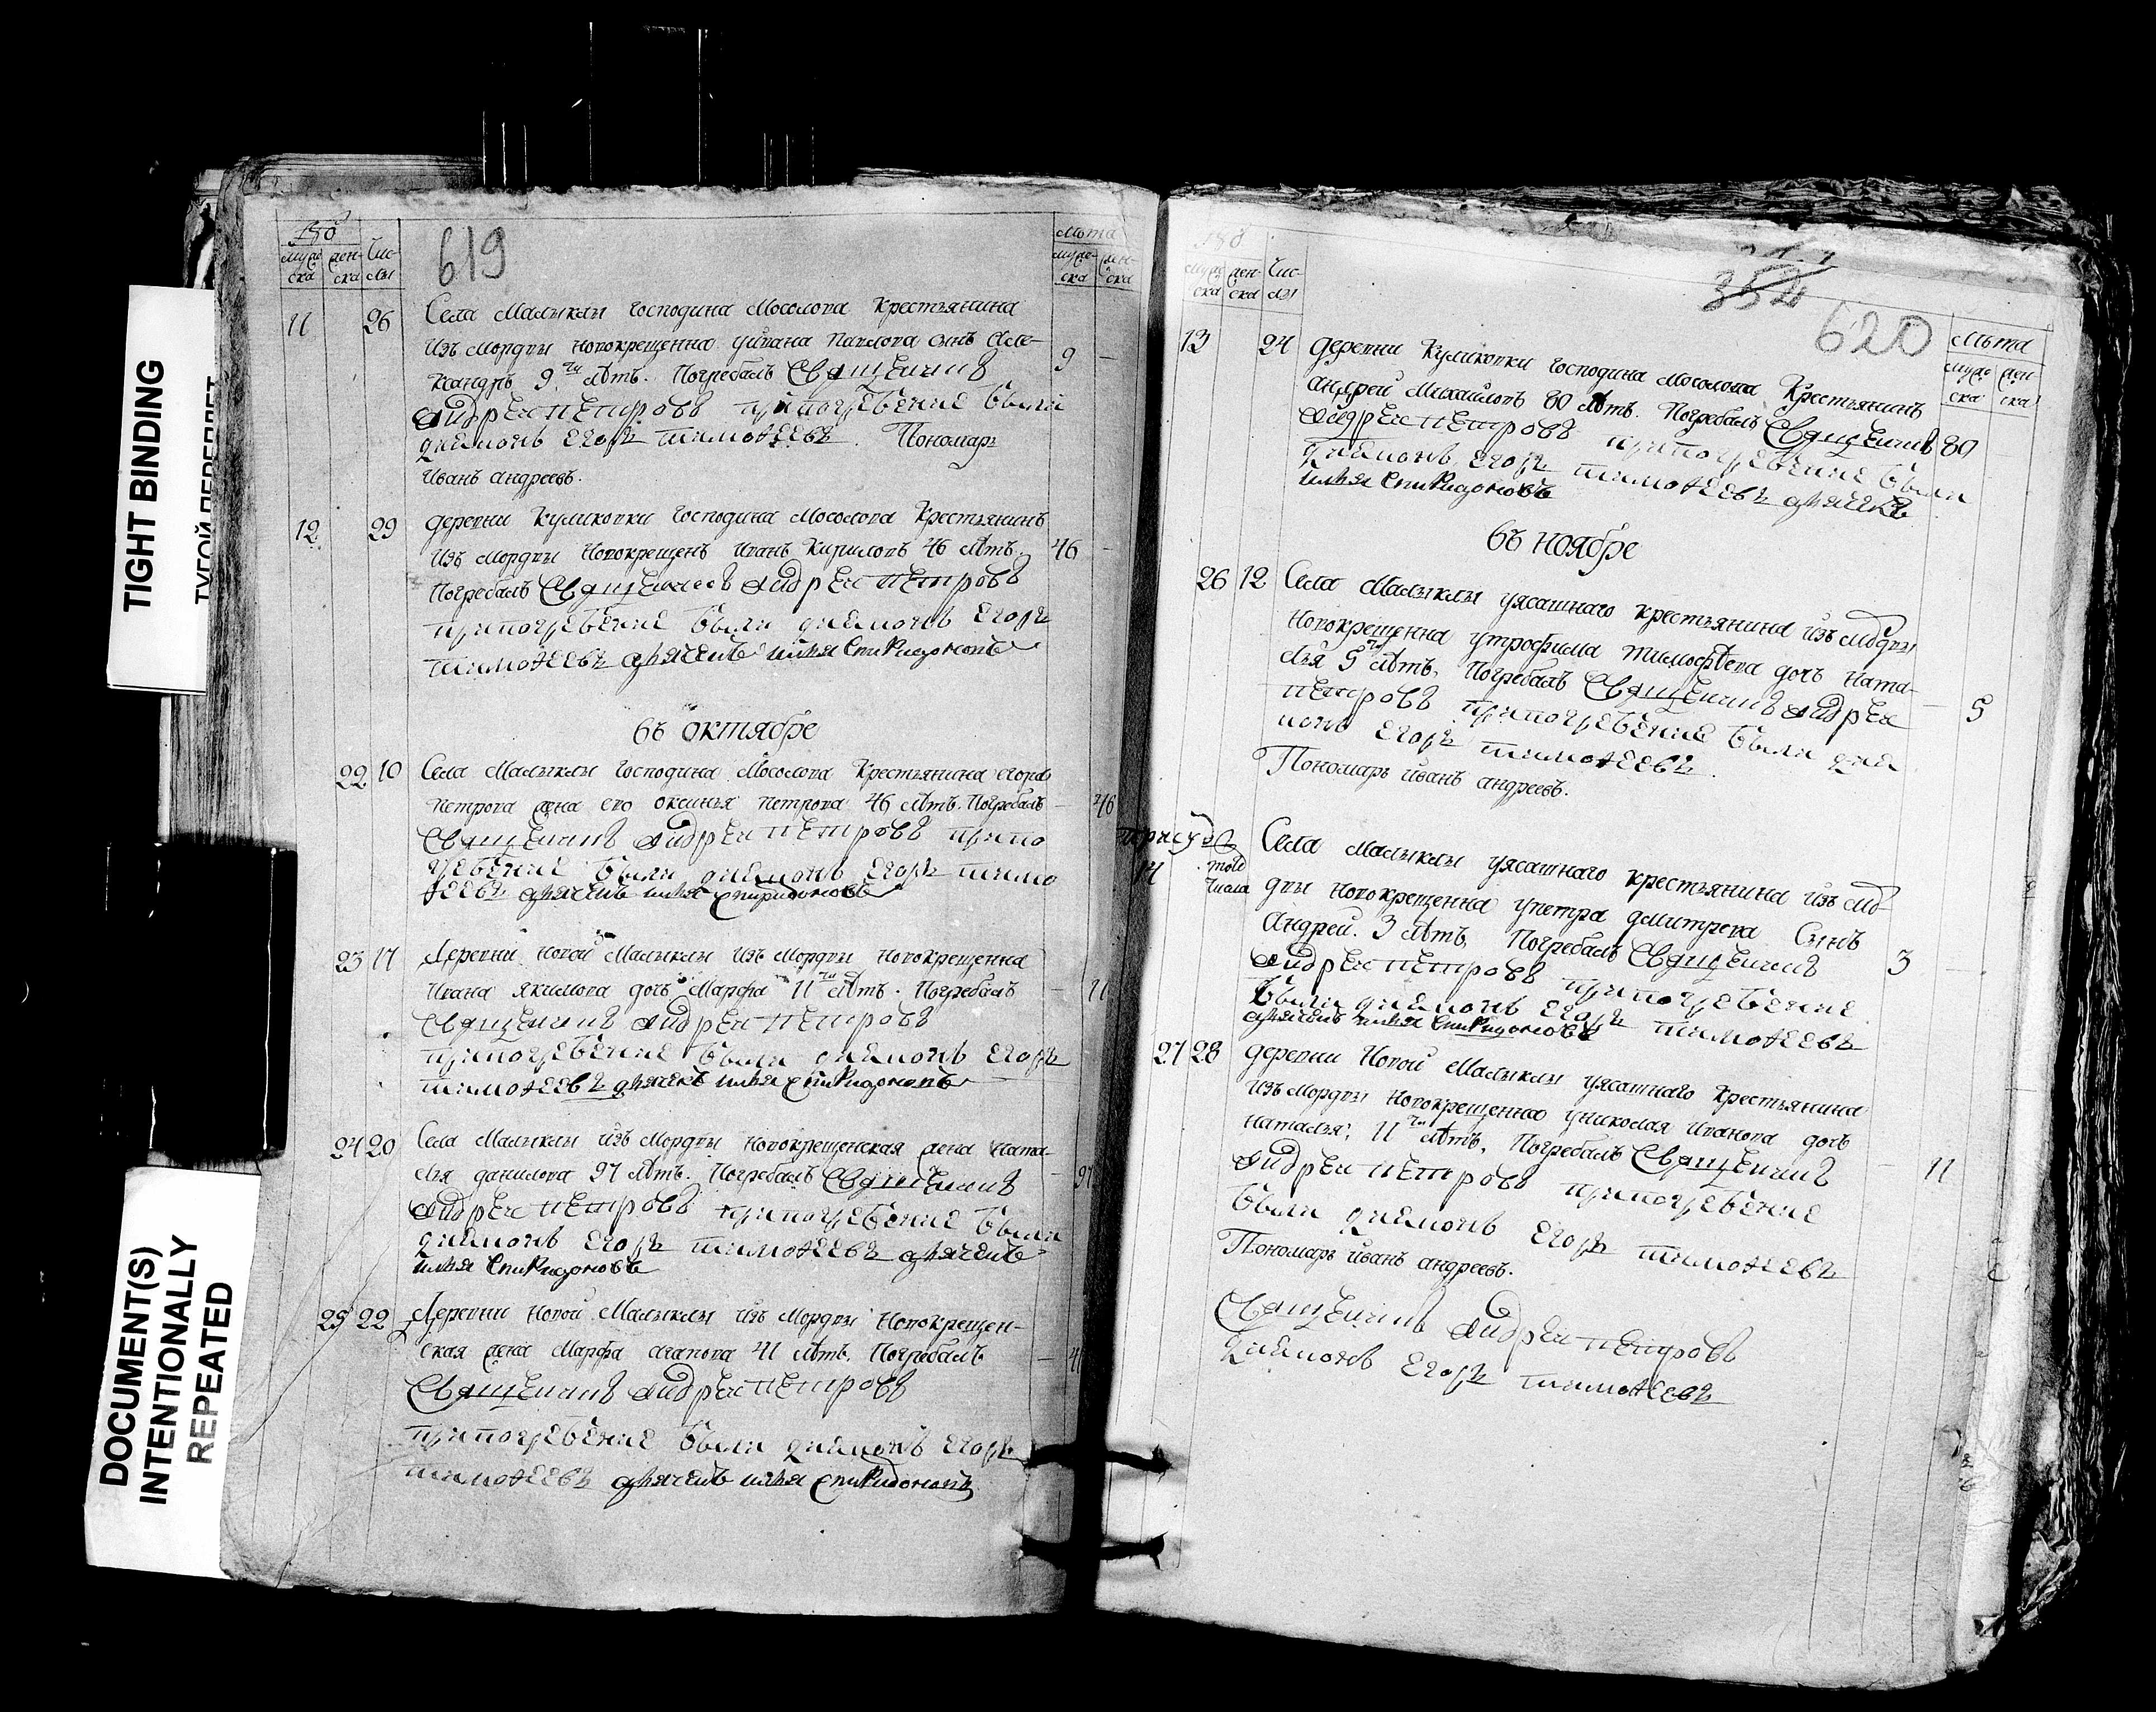 TIGHT BINDING
ТУГОЙ ПЕРЕПЛЕТ
DOCUMENT(S)
INTENTIONALLY
REPEATED
619
Чис-
лы
Лѣта
муже-
ска
жен-
ска
11 26 Села Малыклы господина Мосолова крестьянина
изъ Мордвы новокрещенна уивана Павлова сынъ Але-
ксандръ 9 ти лѣтъ. Погребалъ Священникъ 9
андреи петровъ припогребение были
диаконъ егоръ тимофеевъ. Пономарь
Иванъ андреевъ.
12 29 деревни Куликовки господина Мосолова крестьянинъ
изъ Мордвы Новокрещенъ Иванъ Кирилловъ 46 лѣтъ. 46
Погребалъ Священникъ андреи петровъ
припогребение были диаконъ егоръ
тимофеевъ дьячекъ илья спиридоновъ
въ октябре
22 10 Села Малыклы господина Мосолова крестьянина егора
петрова жена его оксинья петрова 46 лѣтъ. Погребалъ 46
Священникъ андреи петровъ припо
гребение были диаконъ егоръ тимо
феевъ дьячекъ илья спиридоновъ
23 17 Деревни новой Малыклы изъ Мордвы новокрещенна
Ивана якимова дочь Марфа 11 ти лѣтъ. Погребалъ 11
Священникъ андреи петровъ
припогребение были диаконъ егоръ
тимофеевъ дьячекъ илья спиридоновъ
24 20 Села Малыклы изъ Мордвы новокрещенская жена ната-
лья данилова 97 лѣтъ. Погребалъ Священникъ 97
андреи петровъ припогребение были
диаконъ егоръ тимофеевъ дьячекъ
илья спиридоновъ
25 22 Деревни новой Малыклы изъ Мордвы Новокрещен-
ская жена Марфа агапова 41 лѣтъ. Погребалъ 41
Священникъ андреи петровъ
припогребение были диаконъ егоръ
тимофеевъ дьячекъ илья спиридоновъ
354
620
Чис-
лы
Лѣта
муже
ска
жен-
ска
13 24 деревни Куликовки господина Мосолова крестьянинъ
андрей Михайловъ 80 лѣтъ. Погребалъ Священникъ 80
андреи петровъ припогребение были
диаконъ егоръ тимофеевъ дьячекъ
илья спиридоновъ
въ ноябре
26 12 Села Малыклы уясашнаго крестьянина изъ мордвы
Новокрещенна утрофима тимофѣева дочь ната-
лья 5 ти лѣтъ. Погребалъ Священникъ андреи 5
петровъ припогребение были диа
конъ егоръ тимофеевъ.
Пономарь иванъ андреевъ.
14 того числа Села малыклы уясашнаго крестьянина изъ мор-
двы новокрещенна упетра дмитрева Сынъ
Андрей. 3 лѣтъ. Погребалъ Священникъ 3
андреи петровъ припогребение
были диаконъ егоръ тимофеевъ
дьячекъ илья спиридоновъ
27 28 деревни Новой Малыклы уясашнаго крестьянина
изъ Мордвы новокрещенна униколая иванова дочь
наталья; 11 ти лѣтъ. Погребалъ Священникъ 11
андреи петровъ припогребение
были диаконъ егоръ тимофеевъ
Пономарь иванъ андреевъ.
Священникъ андреи петровъ
диаконъ егоръ тимофеевъ